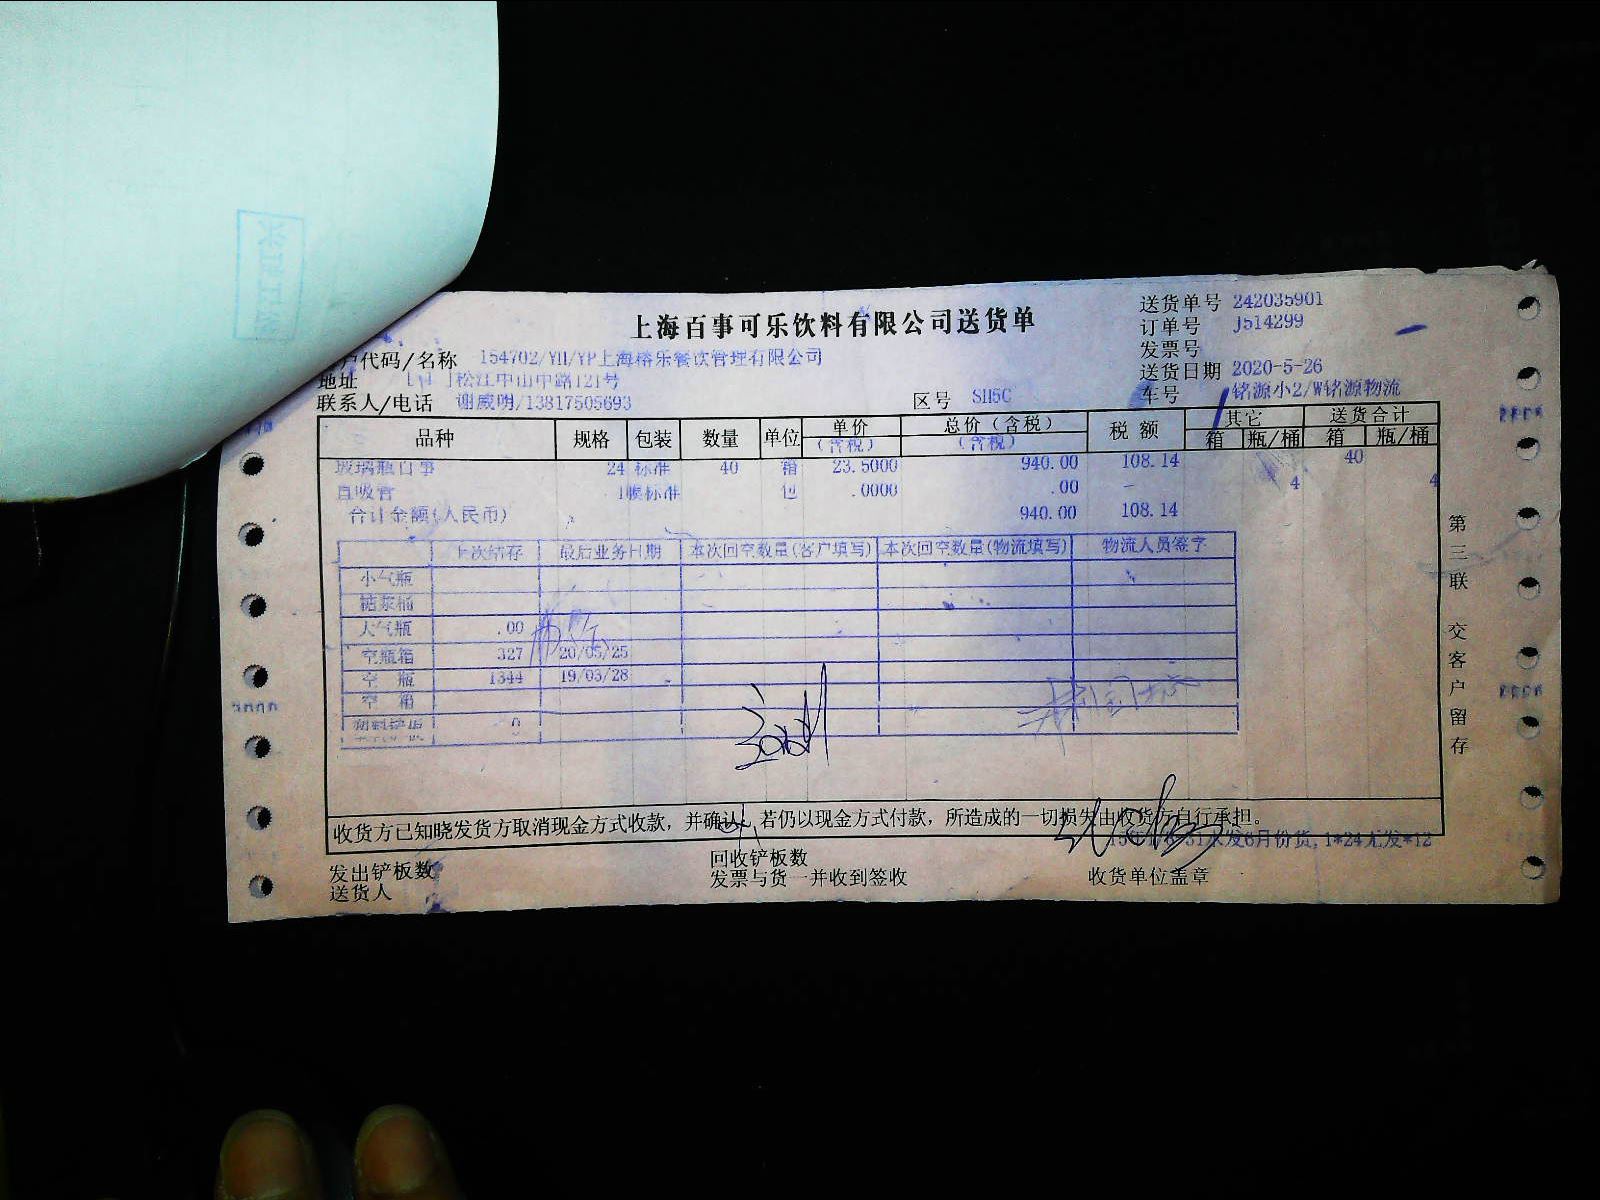 上海百事可乐饮料有限公司送货单
送货单号 242035901
订单号 J514299
发票号
送货日期 2020-5-26
车号 铭源小2/W铭源物流
户代码/名称 154702/YH/YP上海榕乐餐饮管理有限公司
地址 松江中山中路121号
联系人/电话 谢威明/13817505693 区号 SH5C
品种 规格 包装 数量 单位 单价(含税) 总价(含税) 税额 其它 送货合计
(含税) 箱 瓶/桶 箱 瓶/桶
玻璃瓶百事 24 标准 40 箱 23.5000 940.00 108.14 40
直吸管 标准 .0000 .00 - 4 4
合计金额(人民币) 940.00 108.14
上次结存 最后业务日期 本次回空数量(客户填写) 本次回空数量(物流填写) 物流人员签字
小气瓶
糖浆桶
大气瓶 .00
空瓶箱 327 20/05/25
空 瓶 1344 19/03/28
空 箱
0
第三联 交客户留存
收货方已知晓发货方取消现金方式收款，并确认，若仍以现金方式付款，所造成的一切损失由收货方自行承担。
发6月份货,1*24无发*12
发出铲板数 回收铲板数
送货人 发票与货一并收到签收 收货单位盖章